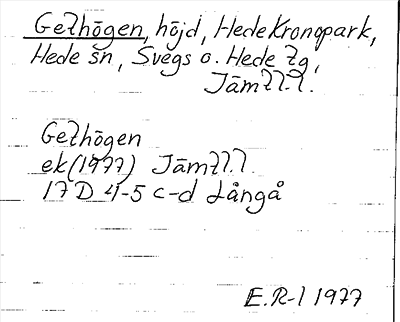 Gethögen, höjd, Hede Kronopark,
Hede sn, Svegs o. Hede tg,
Jämtl. l.
Gethögen
ek (1977) Jämtl. l.
17 D 4-5 c-d Långå
E.R-l 1977